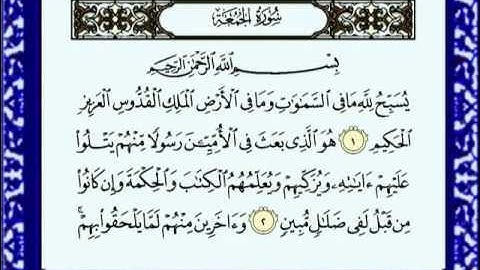 سُورَةُ الجُمُعَةِ
بِسْمِ اللَّهِ الرَّحْمَٰنِ الرَّحِيمِ
يُسَبِّحُ لِلَّهِ مَا فِي السَّمَٰوَٰتِ وَمَا فِي الْأَرْضِ الْمَلِكِ الْقُدُّوسِ الْعَزِيزِ
الْحَكِيمِ ١ هُوَ الَّذِي بَعَثَ فِي الْأُمِّيِّـۧنَ رَسُولًا مِّنْهُمْ يَتْلُوا
عَلَيْهِمْ ءَايَٰتِهِۦ وَيُزَكِّيهِمْ وَيُعَلِّمُهُمُ الْكِتَٰبَ وَالْحِكْمَةَ وَإِن كَانُوا
مِن قَبْلُ لَفِي ضَلَٰلٍ مُّبِينٍ ٢ وَءَاخَرِينَ مِنْهُمْ لَمَّا يَلْحَقُوا بِهِمْ ۚ